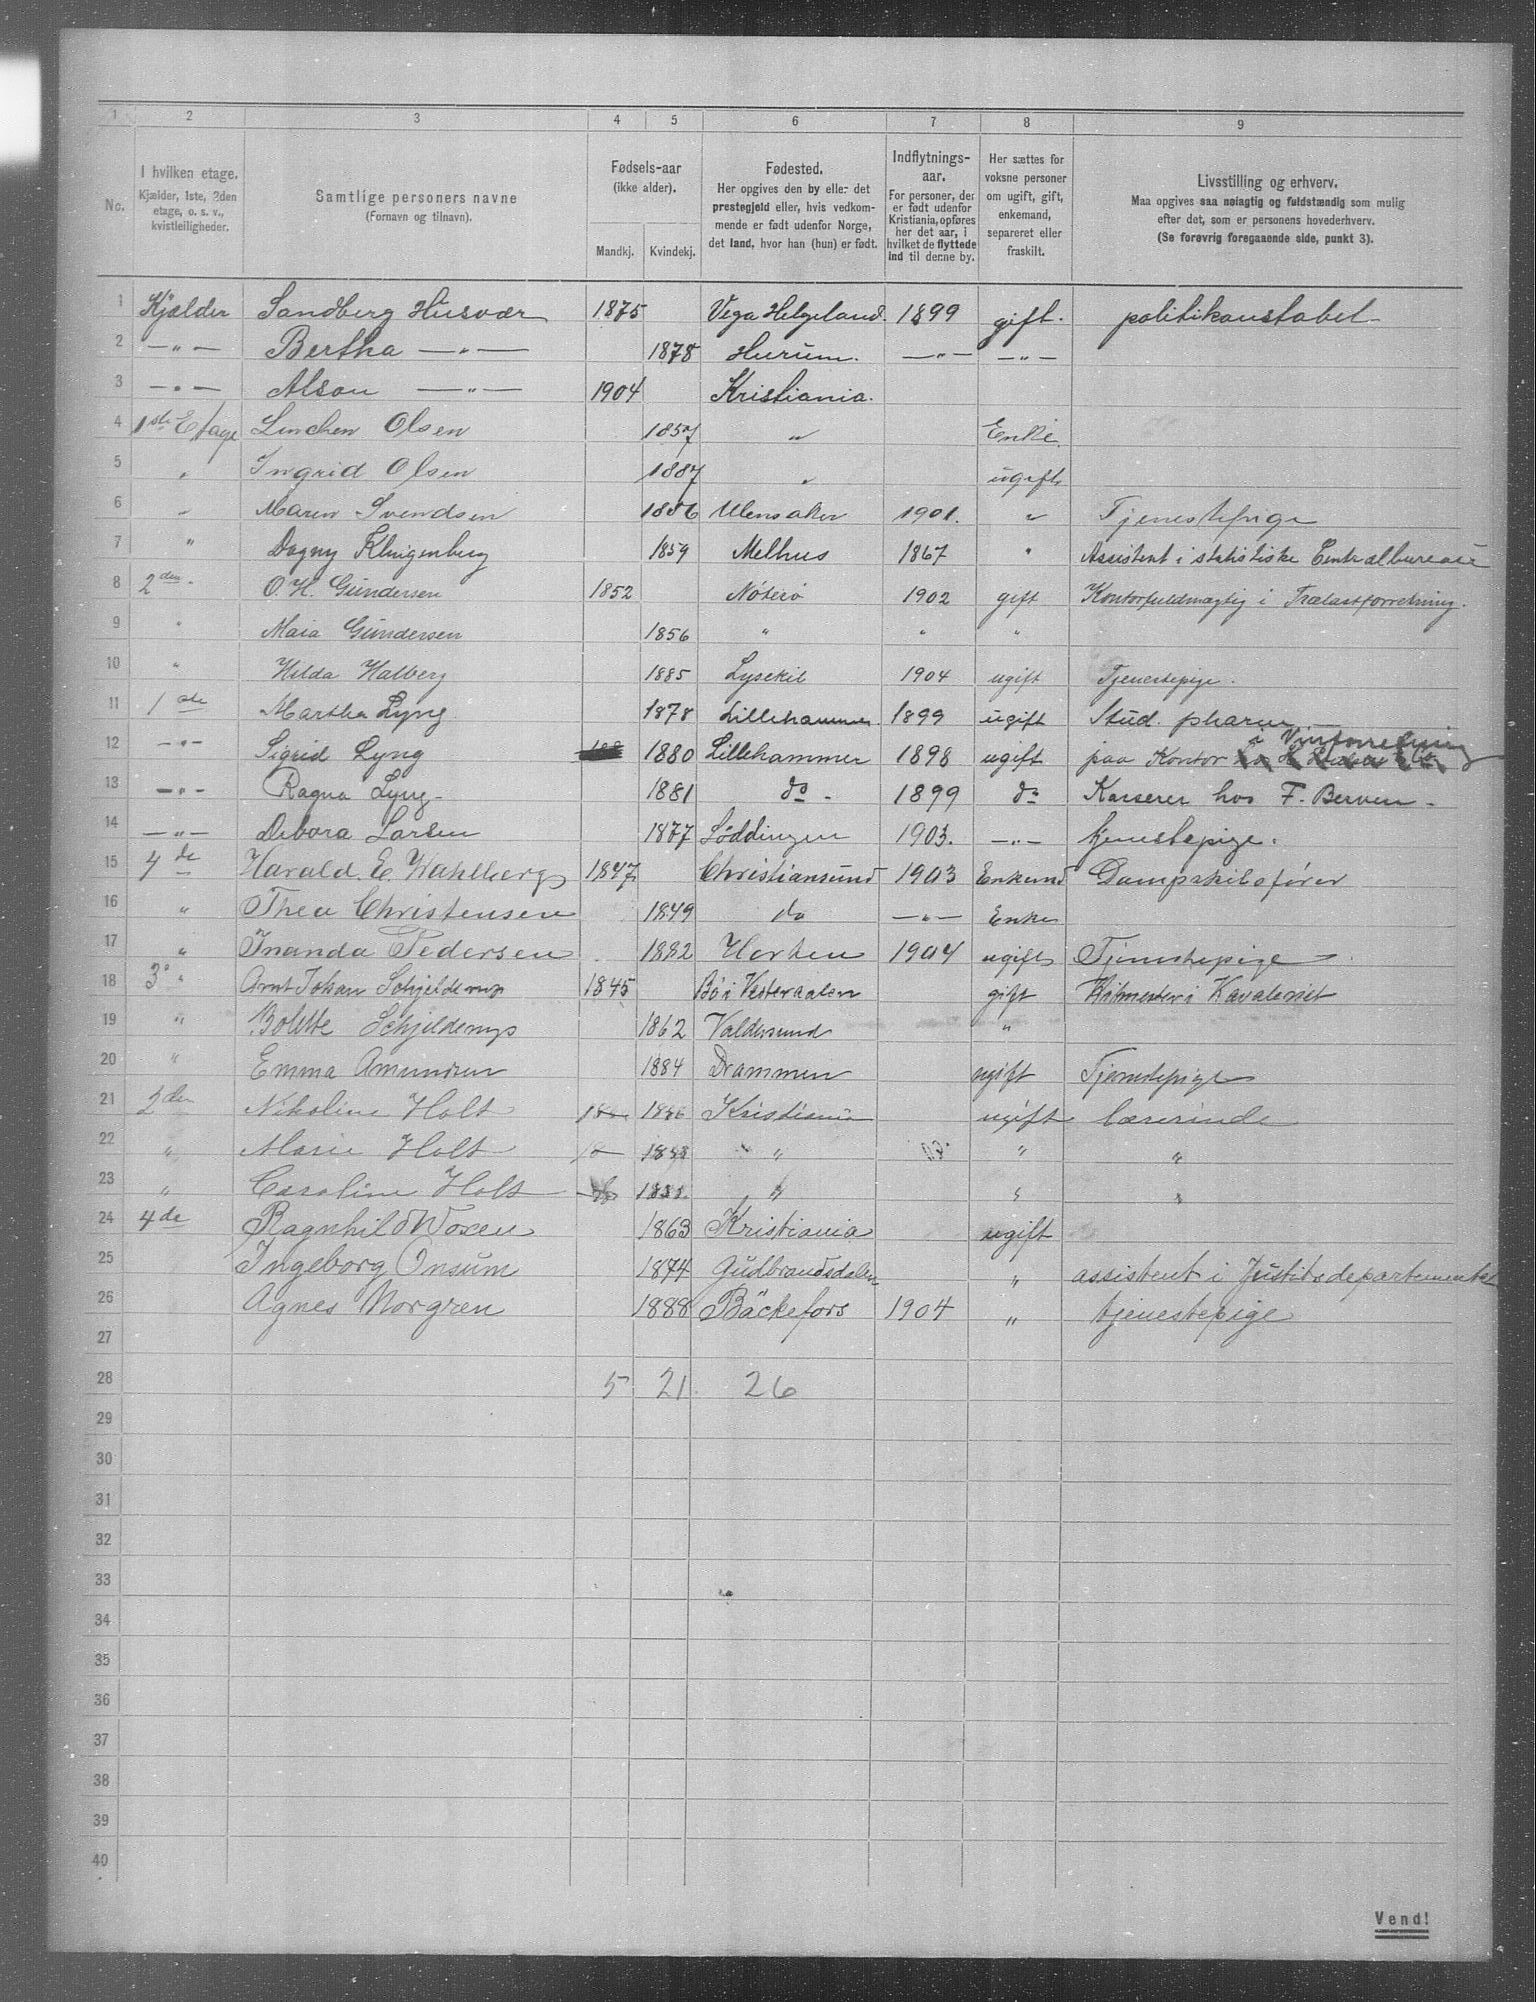 1 2 3 4 5 6 7 8 9
No.
I hvilken etage.
Kjælder, 1ste, 2den
etage, o. s. v.,
kvistleiligheder.
Samtlige personers navne
(Fornavn og tilnavn).
Fødsels-aar
(ikke alder).
Mandkj. Kvindekj.
Fødested.
Her opgives den by eller det
prestegjeld eller, hvis vedkom-
mende er født udenfor Norge,
det land, hvor han (hun) er født.
Indflytnings-
aar.
For personer, der
er født udenfor
Kristiania, opføres
her det aar, i
hvilket de flyttede
ind til denne by.
Her sættes for
voksne personer
om ugift, gift,
enkemand,
separeret eller
fraskilt.
Livsstilling og erhverv.
Maa opgives saa nøiagtig og fuldstændig som mulig
efter det, som er personens hovederhverv.
(Se forøvrig foregaaende side, punkt 3).
1 Kjælder Sandberg Husvær 1875 Vega Helgeland. 1899 gift. politikonstabel
2 —"— Bertha —"— 1878 Hurum. —"— —"—
3 —"— Alson —"— 1904 Kristiania.
4 1ste Etage Linchen Olsen 1857 " Enke.
5 " Ingrid Olsen 1887 " ugift
6 " Maren Svendsen 1856 Ulensaker 1901. " Tjenestepige
7 " Dagny Klingenberg 1859 Melhus 1867 " Assistent i statistiske Centralbureau
8 2den O. H. Gundersen 1852 Nøterø 1902 gift Kontorfuldmægtig i Trælastforretning.
9 " Maia Gundersen 1856 " " "
10 " Hilda Halberg 1885 Lysekil 1904 ugift Tjenestepige.
11 1ste Martha Lyng 1878 Lillehammer. 1899 ugift Stud. pharm
12 —"— Sigrid Lyng 1880 Lillehammer 1898 ugift paa Kontor i
13 —"— Ragna Lyng 1881 do 1899 do Kasserer hos F. Berven
14 —"— Debora Larsen 1877 Løddingen 1903. —"— tjenestepige.
15 4de Harald. E. Wahlberg 1847 Christiansund 1903 Enkemd Dampskibsfører
16 " Thea Christensen 1849 do —"— Enke
17 " Inanda Pedersen 1882 Horten 1904 ugift Tjenestepige
18 3 " Arnt Johan Schjelderup 1845 Bø i Vesteraalen gift Ritmester i Kavaleriet
19 " Bolette Schjelderup 1862 Valdersund "
20 " Emma Amundsen 1884 Drammen ugift Tjenestepige
21 2den Nikoline Holt 1836 Kristiania ugift lærerinde
22 " Marie Holt " " "
23 " Caroline Holt " " "
24 4de Ragnhild Woxen 1863 Kristiania ugift
25 Ingeborg Onsum 1874 Gudbrandsdalen " assistent i Justitsdepartementet
26 Agnes Norgren 1888 Bäckefors 1904 " tjenestepige
27
28 5 21 26
29
30
31
32
33
34
35
36
37
38
39
40
Vend!